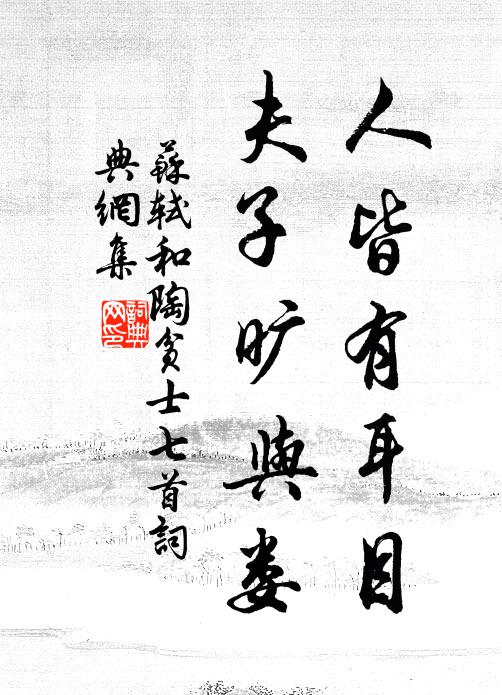 人皆有耳目
夫子旷與娄
蘇軾和陶贫士七首詞
典網集
詞典网印